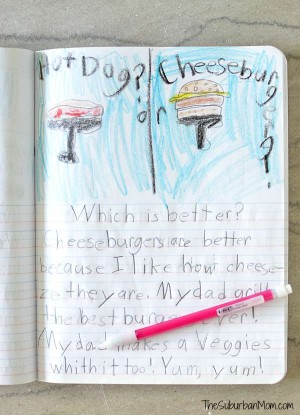 Hot Dog? or Cheeseburger?
Which is better?
Cheeseburgers are better
because I like how cheese-
ze they are. My dad grill
the best burger ever!
My dad makes a Veggies
whith it too! Yum, yum!
TheSuburbanMom.com